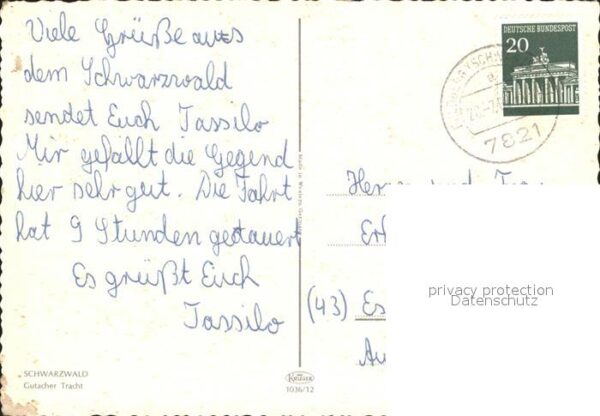 Viele Grüße aus
dem Schwarzwald
sendet Euch Tassilo
Mir gefällt die Gegend
hier sehr gut. Die Fahrt
hat 9 Stunden gedauert
Es grüßt Euch
Tassilo
SCHWARZWALD
Gutacher Tracht
KRÜGER
1036/12
DEUTSCHE BUNDESPOST
20
7821
Herrn und Frau
(43) Es
privacy protection
Datenschutz